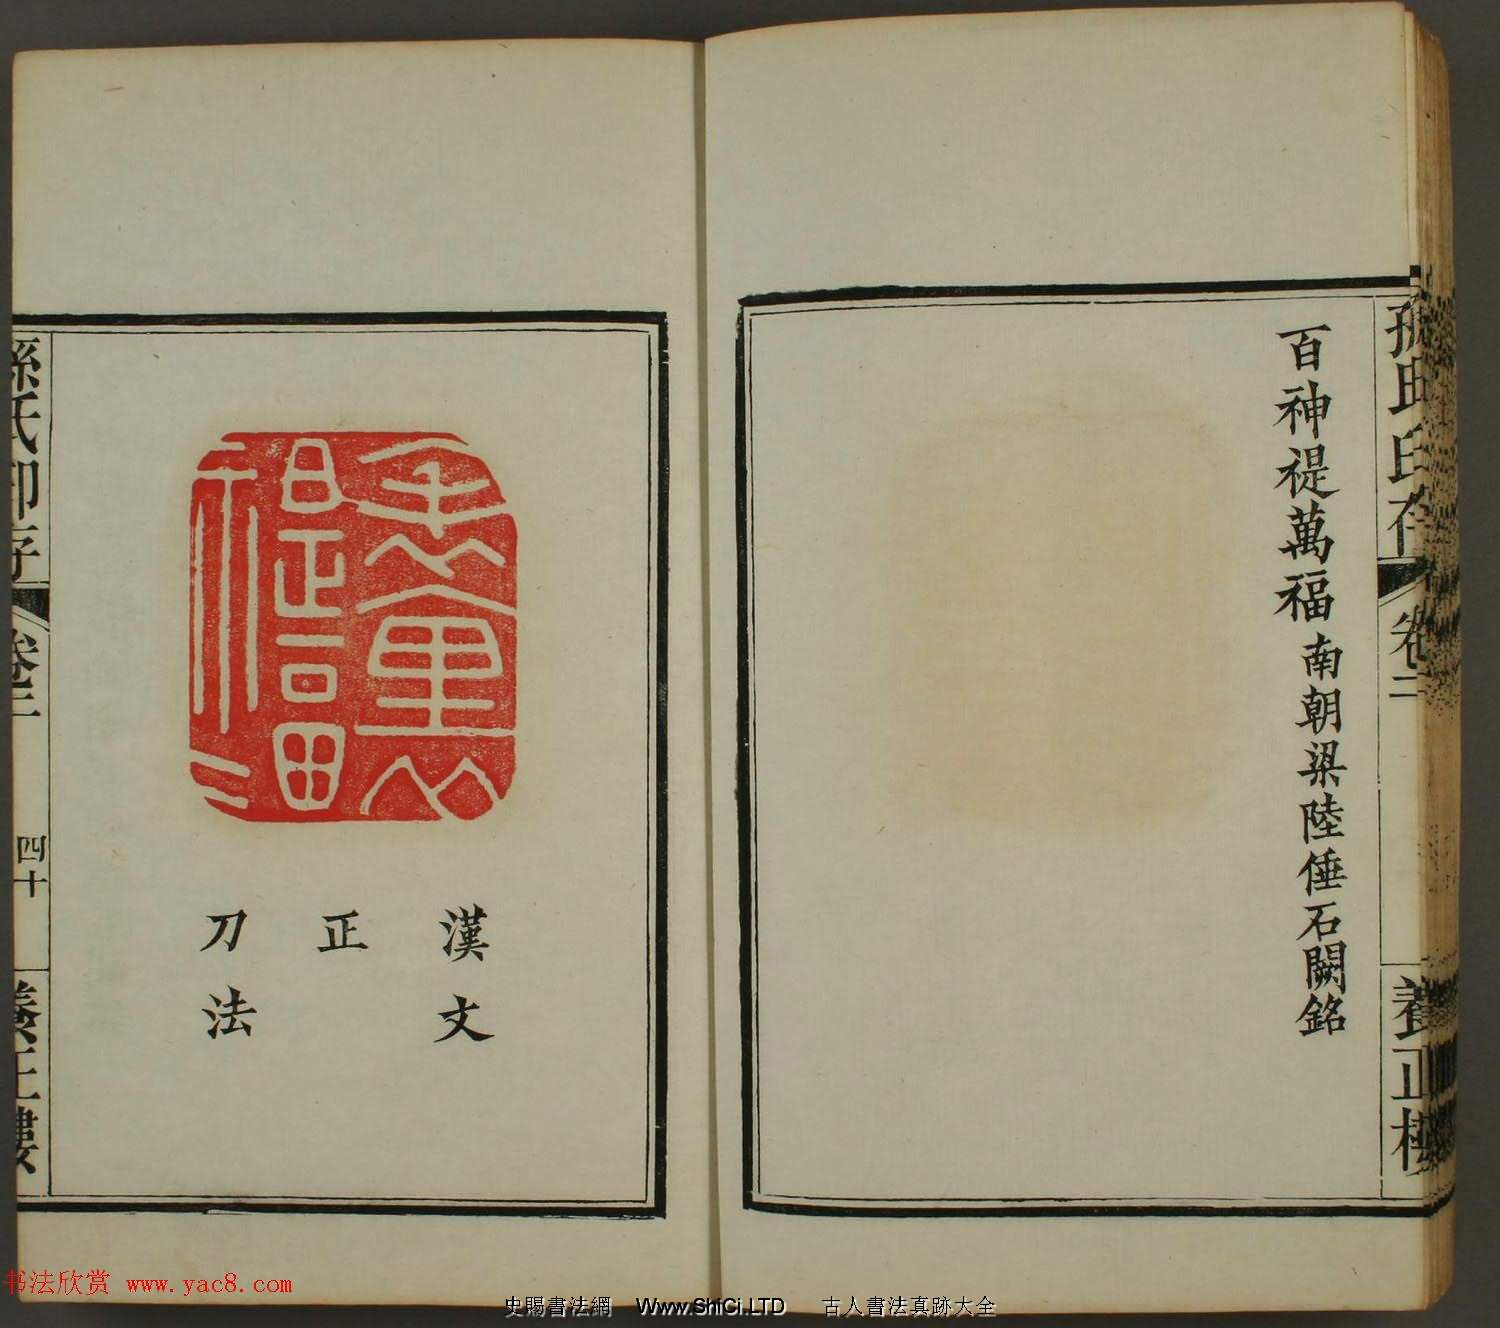 百神禔萬福南朝梁陸倕石闕銘
卷二
養正樓
漢文
正
刀法
孫氏印存
卷二
四十
養正樓
书法欣赏 www.yac8.com
史賜書法網 Www.ShiCi.LTD 古人書法真跡大全